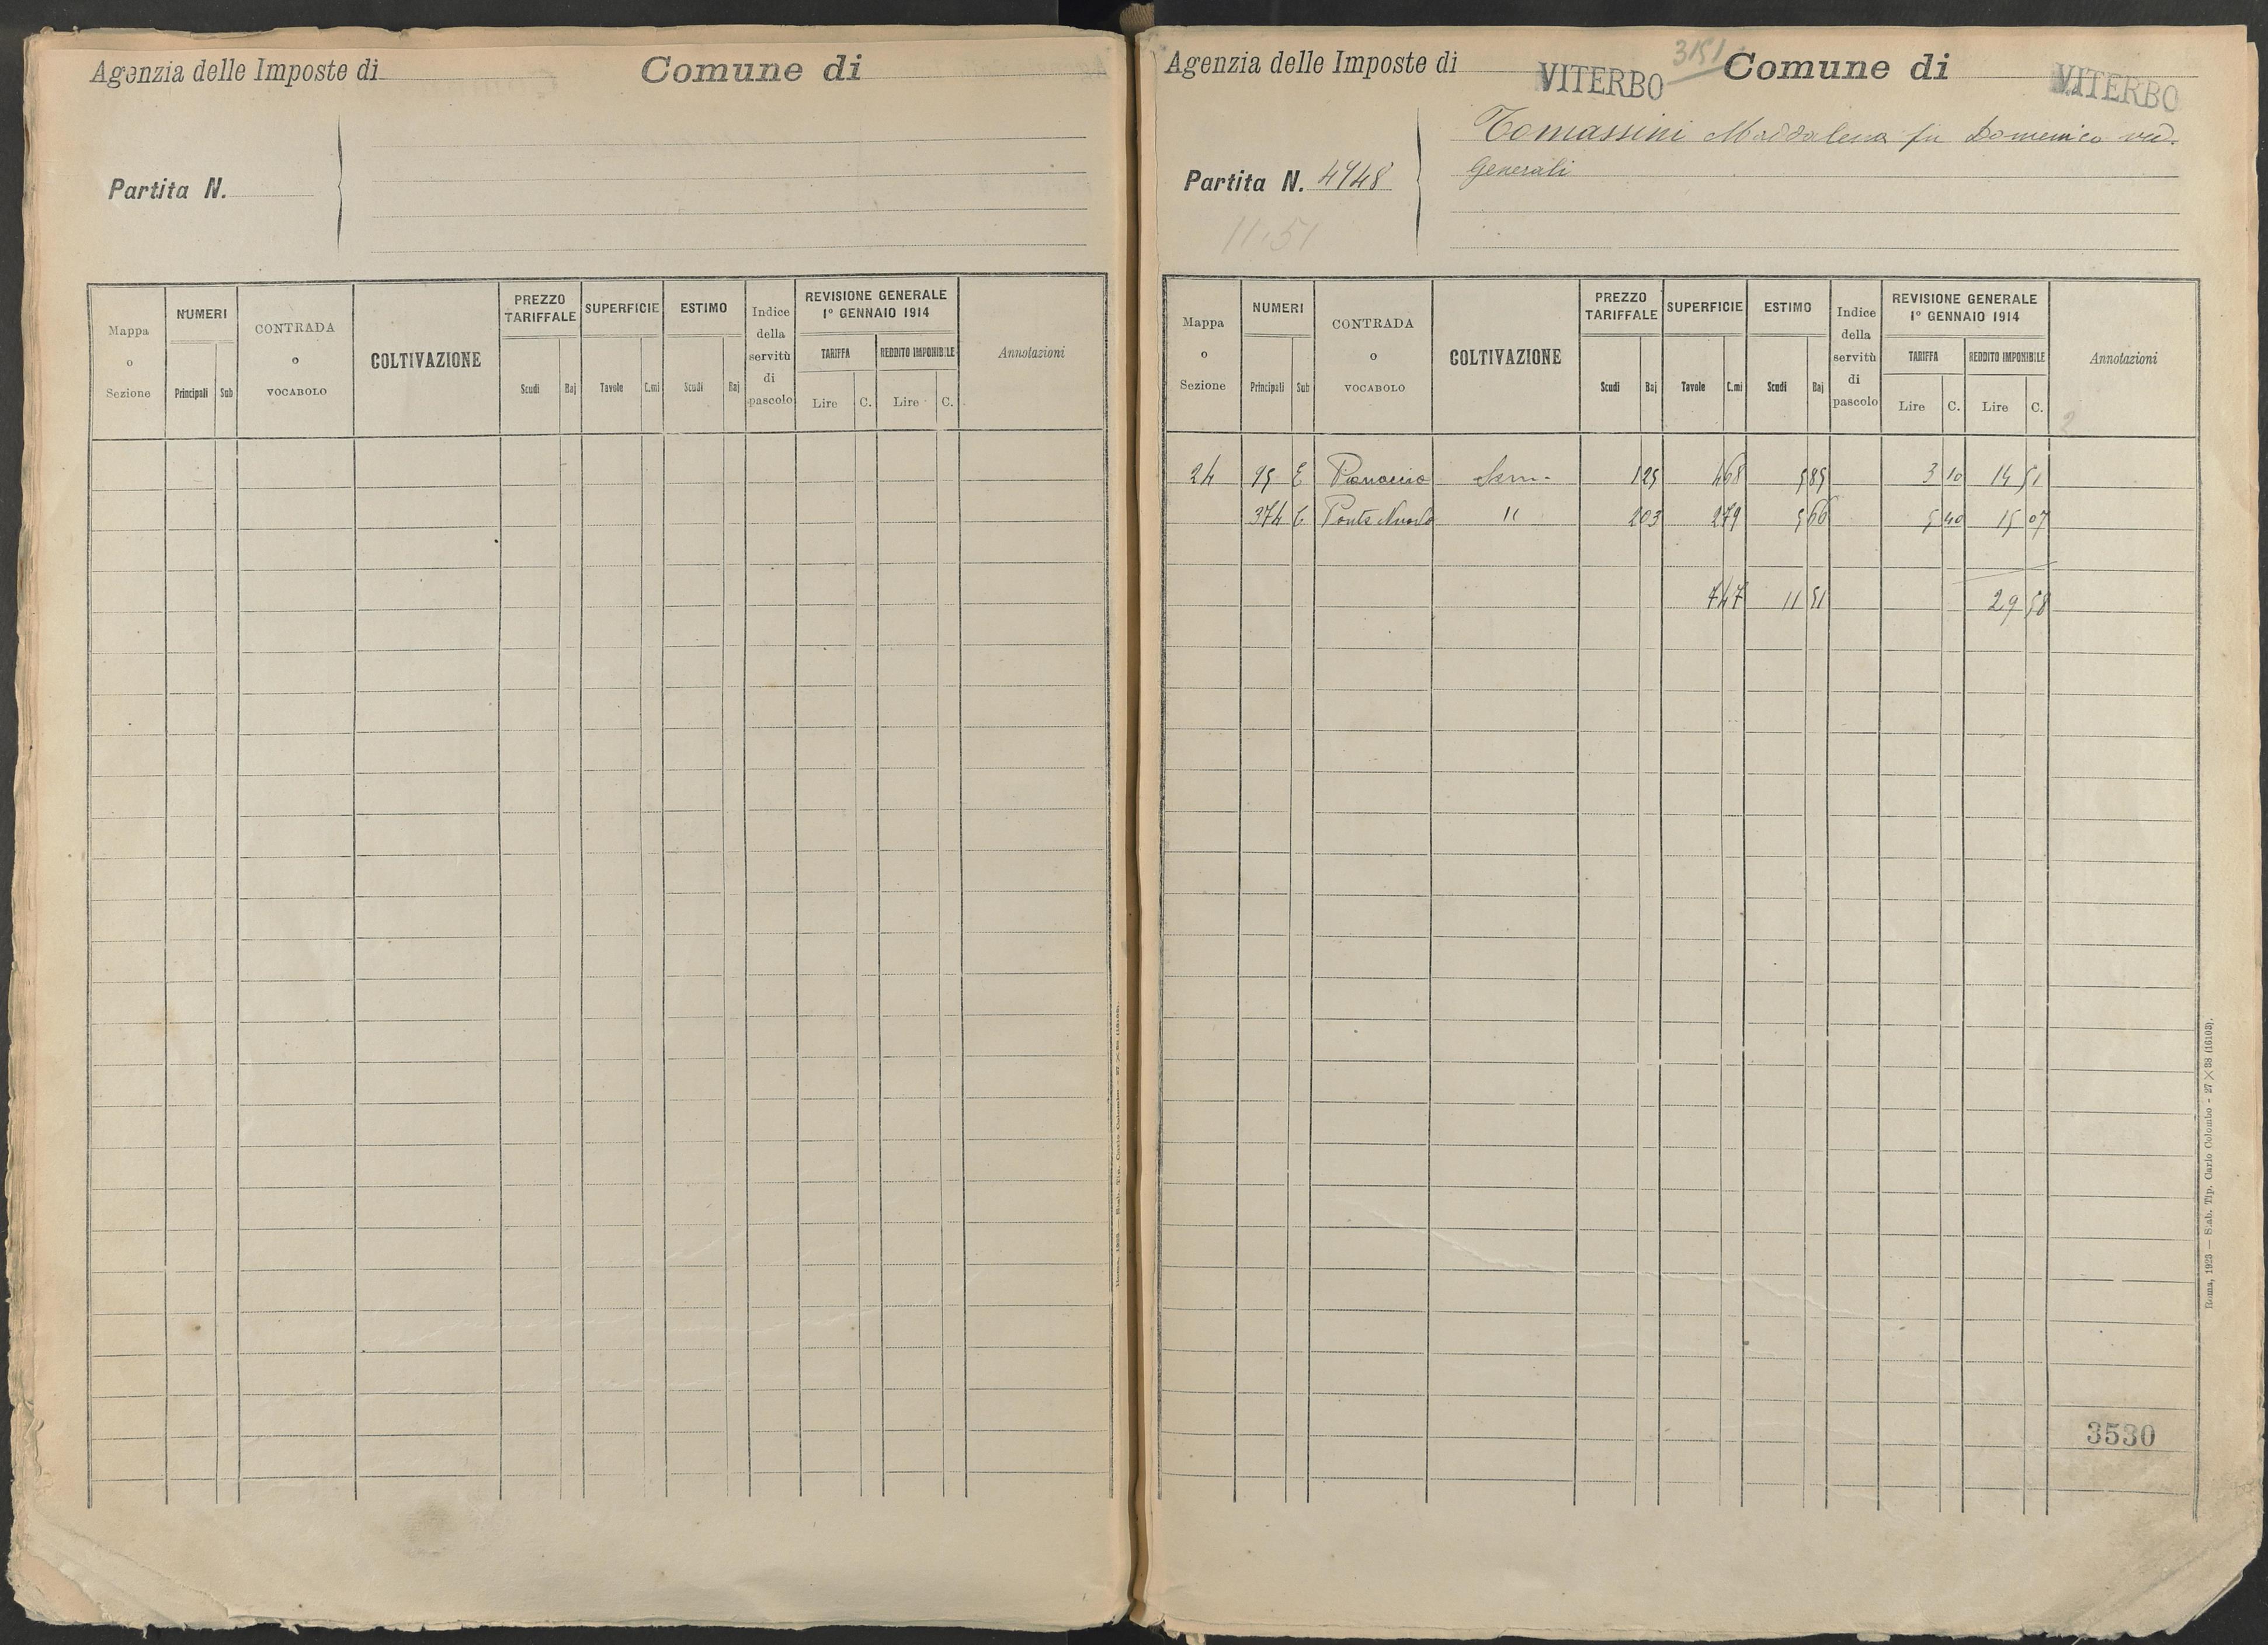 Agenzia delle Imposte di
Comune di
Partita N.
Mappa o Sezione
NUMERI
Principali Sub
CONTRADA o VOCABOLO
COLTIVAZIONE
PREZZO TARIFFALE
Scudi Baj
SUPERFICIE
Tavole C.mi
ESTIMO
Scudi Baj
Indice della servitù di pascolo
REVISIONE GENERALE
1° GENNAIO 1914
TARIFFA REDDITO IMPONIBILE
Lire C. Lire C.
Annotazioni
3151
Agenzia delle Imposte di VITERBO Comune di VITERBO
Tomassini Maddalena fu Domenico ved.
Generali
Partita N. 4948
11.51
Mappa o Sezione
NUMERI
Principali Sub
CONTRADA o VOCABOLO
COLTIVAZIONE
PREZZO TARIFFALE
Scudi Baj
SUPERFICIE
Tavole C.mi
ESTIMO
Scudi Baj
Indice della servitù di pascolo
REVISIONE GENERALE
1° GENNAIO 1914
TARIFFA REDDITO IMPONIBILE
Lire C. Lire C.
Annotazioni
2
24 95 E Sem. 1 25 4 68 5 85 3 10 14 51
374 Ponte Nuovo " 2 03 2 79 5 66 5 40 15 07
7 47 11 51 29 58
3530
Roma, 1923 — Stab. Tip. Carlo Colombo - 27 × 38 (16103).